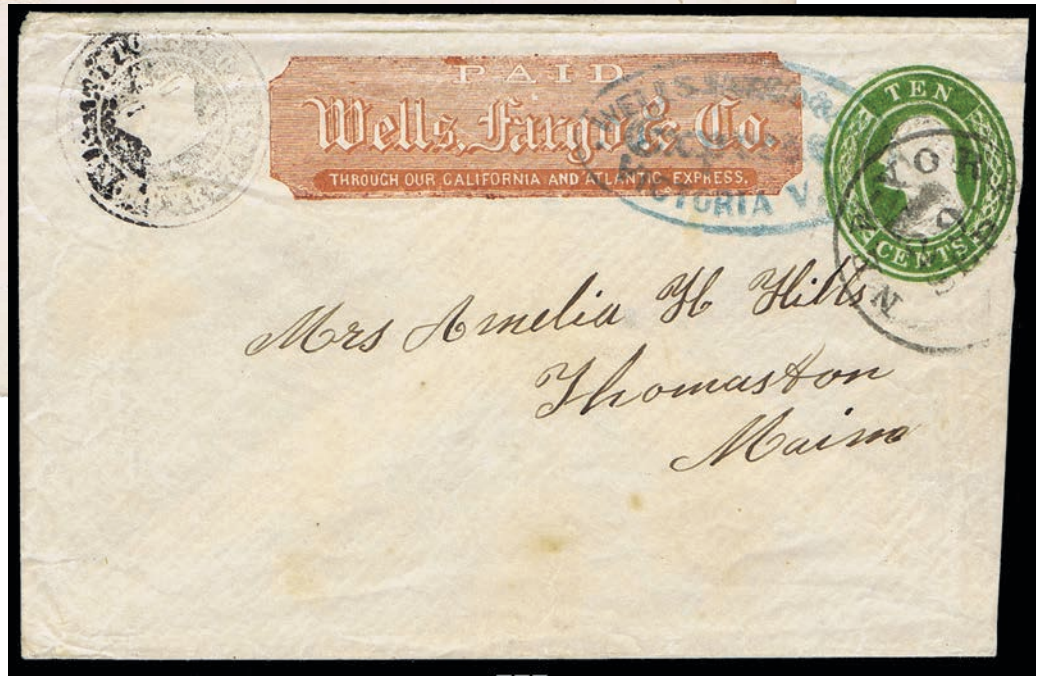 PAID
Wells, Fargo & Co.
THROUGH OUR CALIFORNIA AND ATLANTIC EXPRESS.
WELLS, FARGO &
VICTORIA V.
TEN
CENTS
NEW YOR
SEP
Mrs Amelia H Hills
Thomaston
Maine